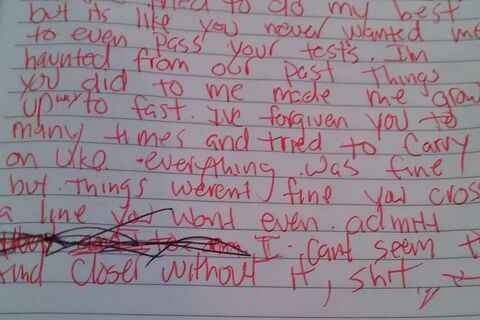 tried to do my best
but its like you never wanted me
to even pass your tests. Im
haunted from our past things
you did to me made me grow
up way to fast. Ive forgiven you to
many times and tried to carry
on like everything was fine
but things werent fine you cross
a line you wont even admit
I cant seem t
find closer without it, shit,